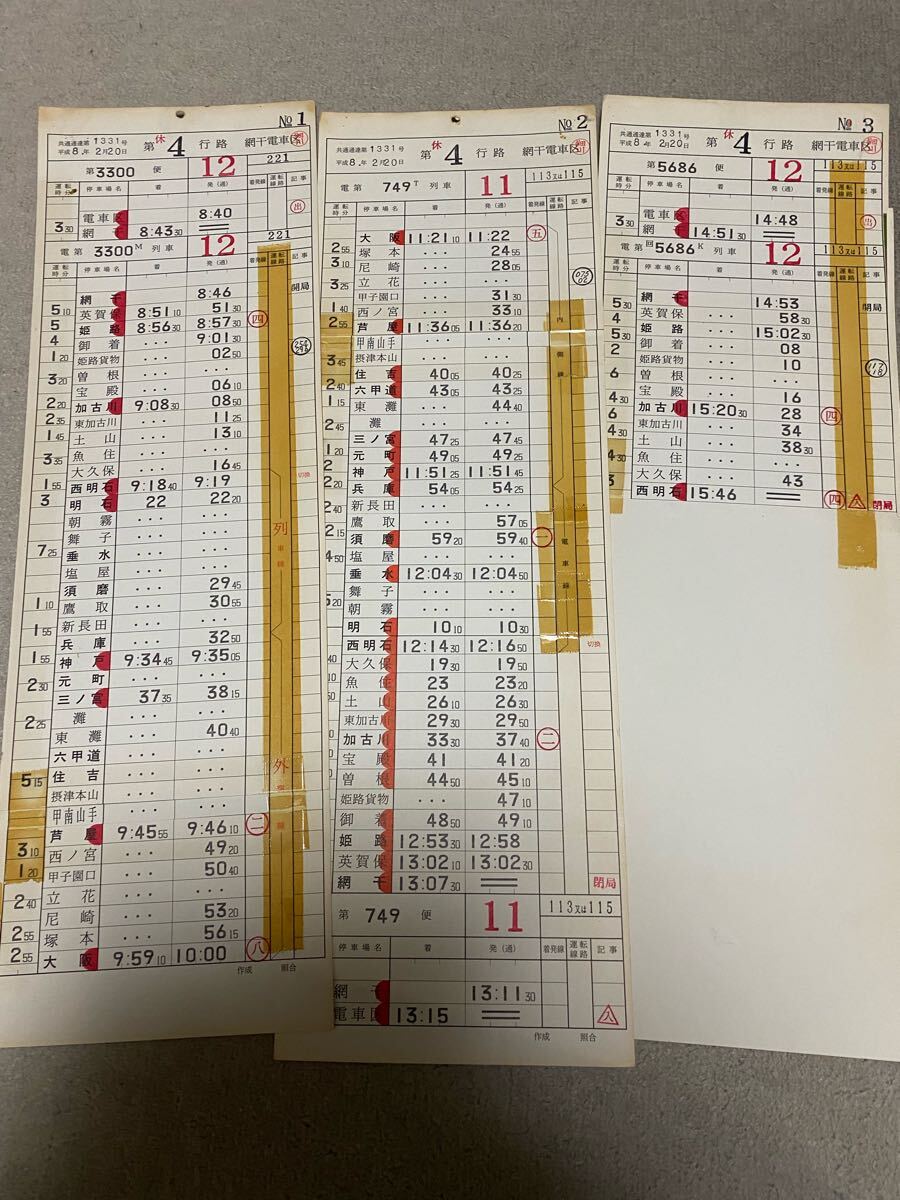 №1
共通通達第1331号
平成8年2月20日
第 休4 行路 網干電車区
第 3300 便 12 221
運転時分 停車場名 着 発(通) 着発線 運転線路 記事
3 30 電車区 8:40 出
網干 8:43 30 ══
電第 3300M 列車 12 221
運転時分 停車場名 着 発(通) 着発線 運転線路 記事
網干 8:46 開局
5 10 英賀保 8:51 10 51 30
5 姫路 8:56 30 8:57 30 四
4 御着 ・・・ 9:01 30
1 20 姫路貨物 ・・・ 02 50
曽根 ・・・
3 20 宝殿 ・・・ 06 10
2 20 加古川 9:08 30 08 50
2 35 東加古川 ・・・ 11 25
1 45 土山 ・・・ 13 10
魚住 ・・・
3 35 大久保 ・・・ 16 45
1 55 西明石 9:18 40 9:19 切換
3 明石 22 22 20
朝霧 ・・・
舞子 ・・・ 列車線
7 25 垂水 ・・・
塩屋 ・・・
須磨 ・・・ 29 45
1 10 鷹取 ・・・ 30 55
新長田 ・・・
1 55 兵庫 ・・・ 32 50
1 55 神戸 9:34 45 9:35 05
2 30 元町 ・・・
三ノ宮 37 35 38 15
2 25 灘 ・・・
東灘 ・・・ 40 40
六甲道 ・・・
5 15 住吉 ・・・ 外側線
摂津本山 ・・・
甲南山手 ・・・
芦屋 9:45 55 9:46 10 二
3 10 西ノ宮 ・・・ 49 20
1 20 甲子園口 ・・・ 50 40
2 40 立花 ・・・
尼崎 ・・・ 53 20
2 55 塚本 ・・・ 56 15
2 55 大阪 9:59 10 10:00 八
作成 照合
№2
共通通達第1331号
平成8年2月20日
第 休4 行路 網干電車区
電第 749T 列車 11 113又は115
運転時分 停車場名 着 発(通) 着発線 運転線路 記事
大阪 11:21 10 11:22 五
2 55 塚本 ・・・ 24 55
尼崎 ・・・ 28 05
3 25 立花 ・・・
甲子園口 ・・・ 31 30
1 40 西ノ宮 ・・・ 33 10
2 55 芦屋 11:36 05 11:36 20 内側線
甲南山手 ・・・
3 45 摂津本山 ・・・
住吉 40 05 40 25
六甲道 43 05 43 25
1 15 東灘 ・・・ 44 40
灘 ・・・
三ノ宮 47 25 47 45
元町 49 05 49 25
神戸 11:51 25 11:51 45
兵庫 54 05 54 25
新長田 ・・・
鷹取 ・・・ 57 05
2 15 須磨 59 20 59 40 一 電車線
塩屋 ・・・
垂水 12:04 30 12:04 50
舞子 ・・・
朝霧 ・・・
明石 10 10 10 30
西明石 12:14 30 12:16 50 切換
大久保 19 30 19 50
魚住 23 23 20
土山 26 10 26 30
東加古川 29 30 29 50
加古川 33 30 37 40 二
宝殿 41 41 20
曽根 44 50 45 10
姫路貨物 ・・・ 47 10
御着 48 50 49 10
姫路 12:53 30 12:58
英賀保 13:02 10 13:02 30
網干 13:07 30 ══ 閉局
第 749 便 11 113又は115
停車場名 着 発(通) 着発線 運転線路 記事
網干 13:11 30
電車区 13:15 ══ 入
作成 照合
№3
共通通達第1331号
平成8年2月20日
第 休4 行路 網干電車区
第 5686 便 12 113又は115
運転時分 停車場名 着 発(通) 着発線 運転線路 記事
3 30 電車区 14:48 出
網干 14:51 30 ══
電第 回5686K 列車 12 113又は115
運転時分 停車場名 着 発(通) 着発線 運転線路 記事
網干 14:53 開局
5 30 英賀保 ・・・ 58 30
4 姫路 ・・・ 15:02 30
5 30 御着 ・・・ 08
2 姫路貨物 ・・・ 10
曽根 ・・・
6 宝殿 ・・・ 16
加古川 15:20 30 28 四
東加古川 ・・・ 34
土山 ・・・ 38 30
魚住 ・・・
大久保 ・・・ 43
西明石 15:46 ══ 四 入 閉局